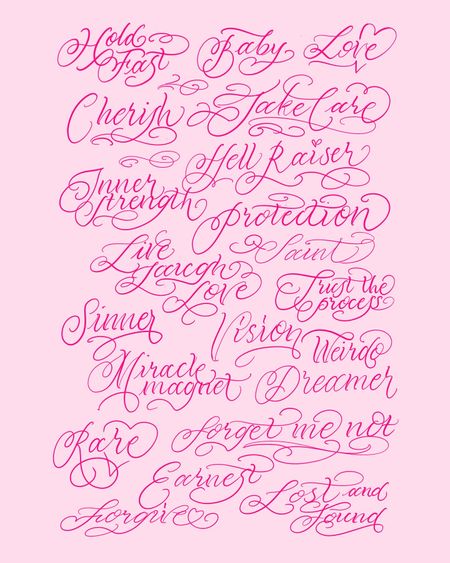 Hold
Fast
Baby
Love
Cherish
Take Care
Hell Raiser
Inner
Strength
Protection
Saint
Live
Laugh
Love
Trust the
process
Sinner
Vision
Weirdo
Miracle
magnet
Dreamer
Rare
Forget me not
Earnest
Lost and
Found
Forgive